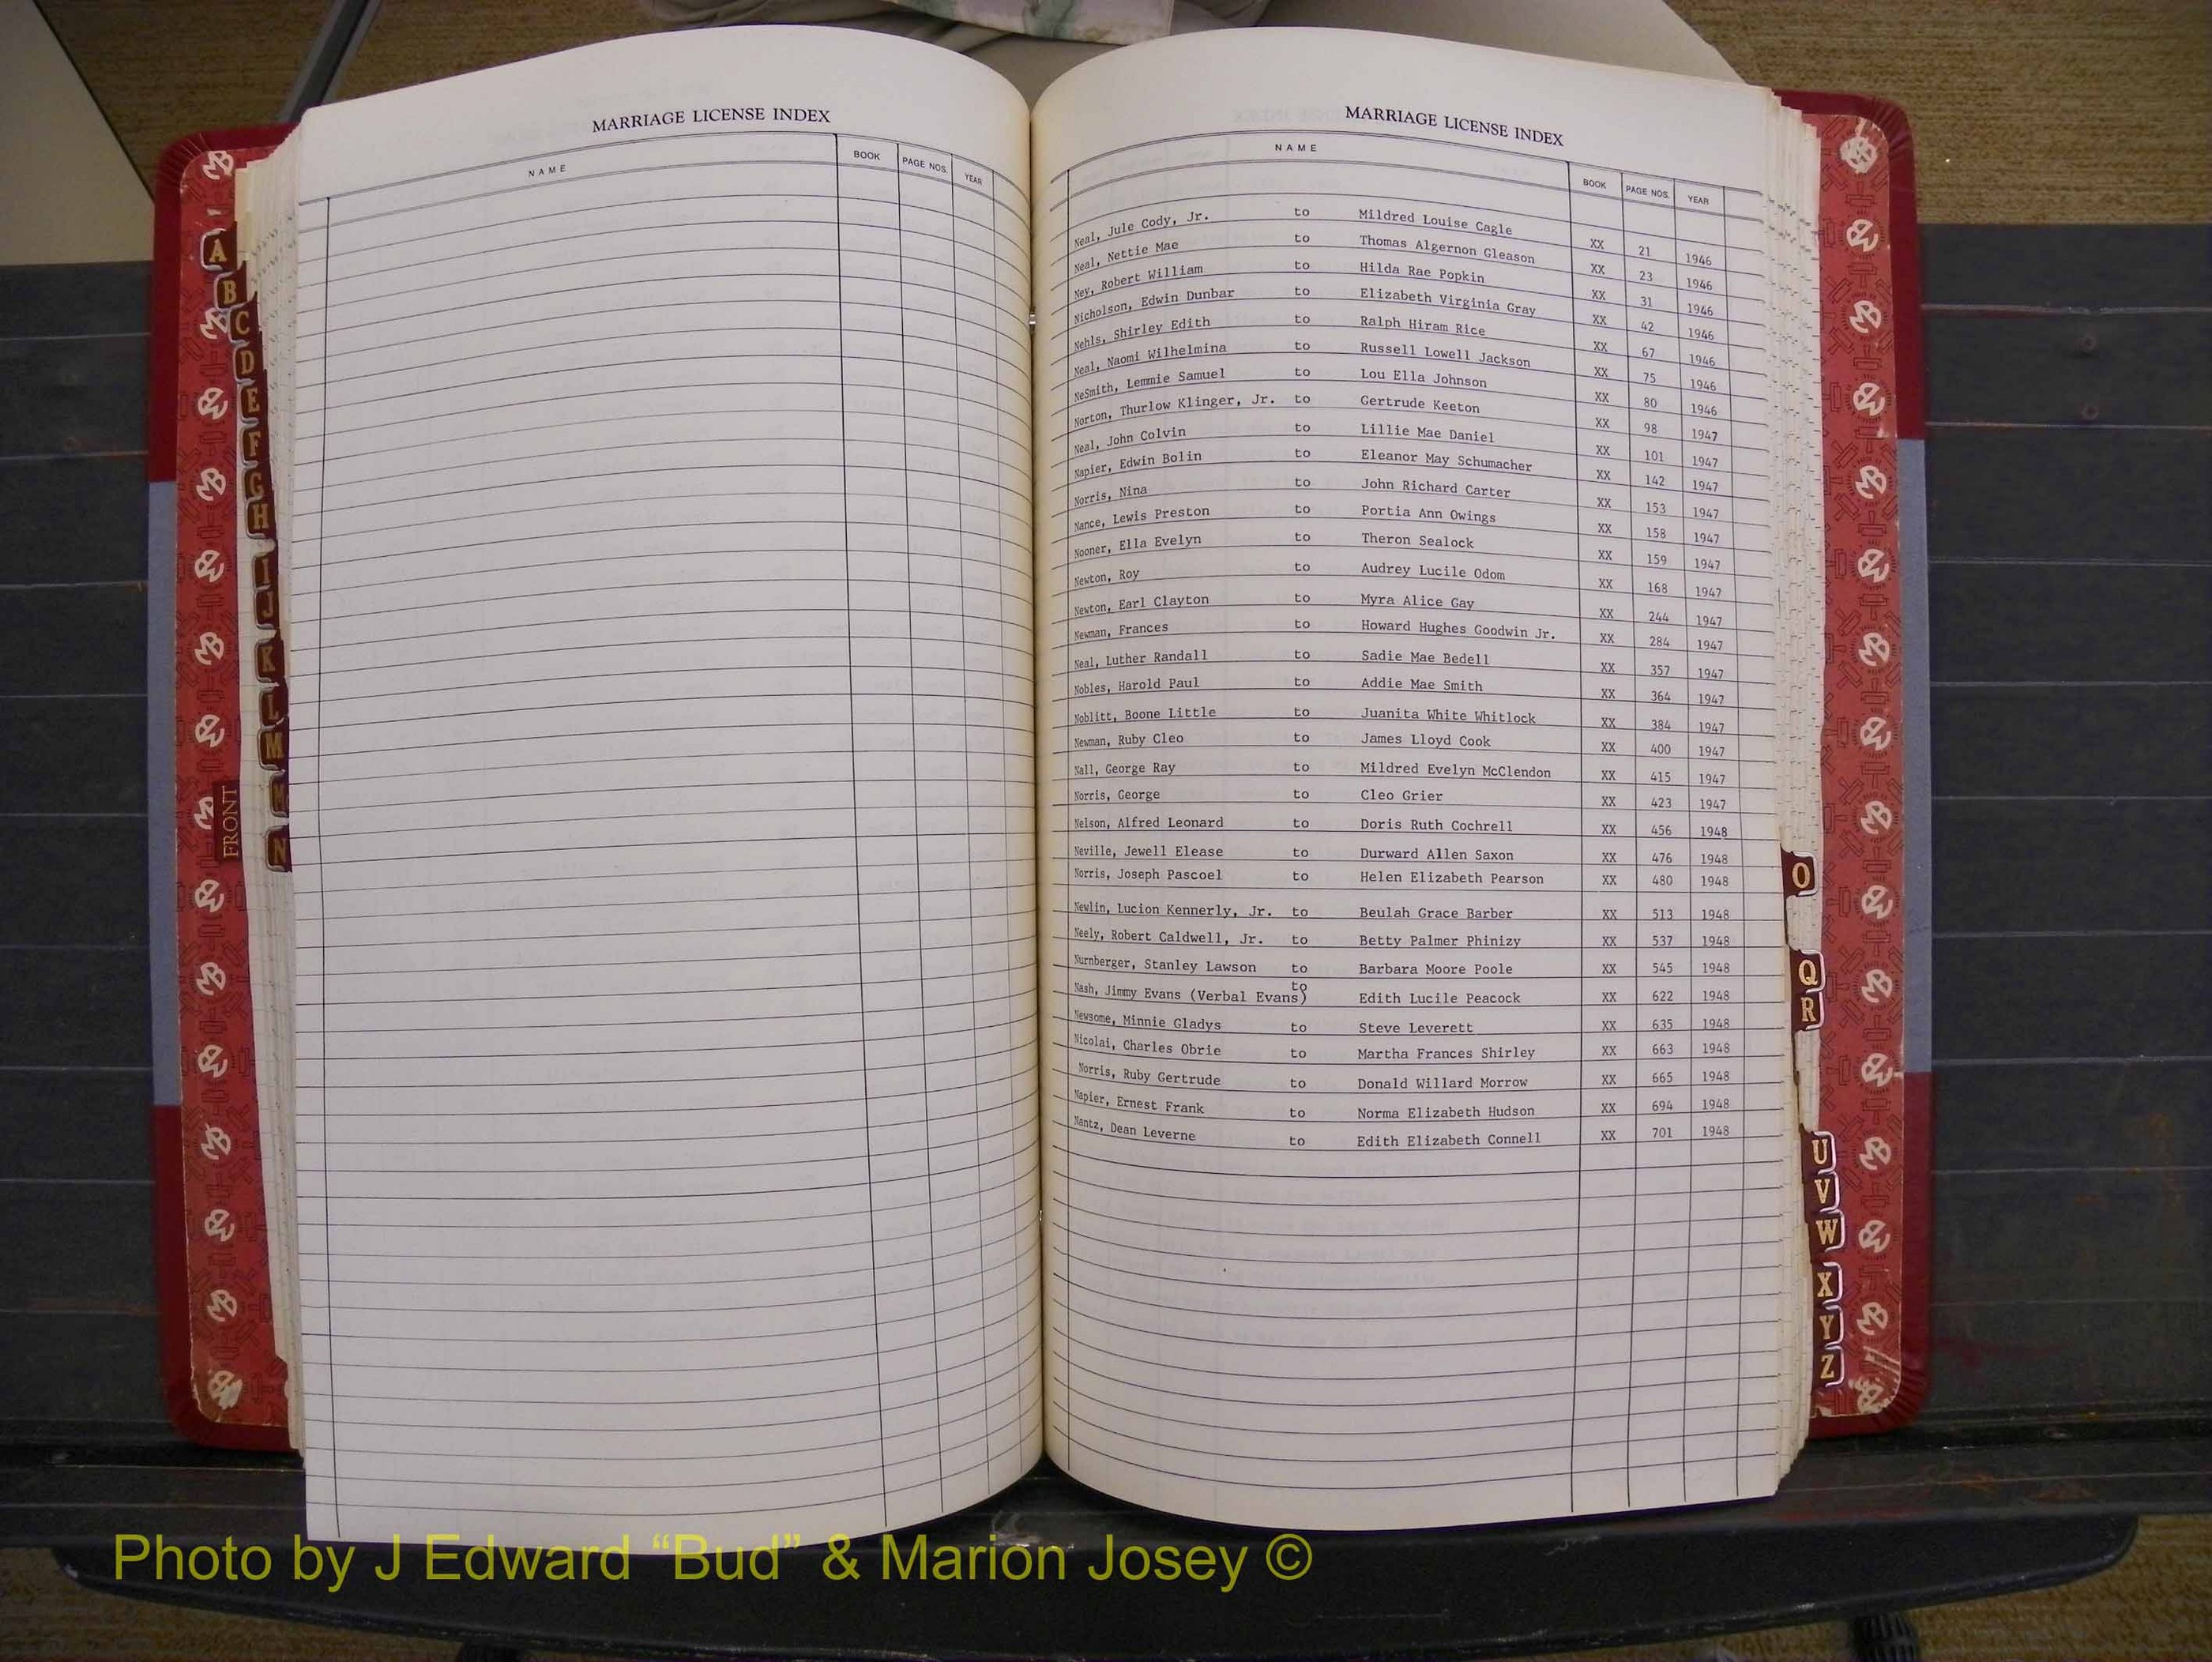 MARRIAGE LICENSE INDEX
NAME BOOK PAGE NOS. YEAR
MARRIAGE LICENSE INDEX
NAME BOOK PAGE NOS. YEAR
Neal, Jule Cody, Jr. to Mildred Louise Cagle XX 21 1946
Neal, Nettie Mae to Thomas Algernon Gleason XX 23 1946
Ney, Robert William to Hilda Rae Popkin XX 31 1946
Nicholson, Edwin Dunbar to Elizabeth Virginia Gray XX 42 1946
Nehls, Shirley Edith to Ralph Hiram Rice XX 67 1946
Neal, Naomi Wilhelmina to Russell Lowell Jackson XX 75 1946
NeSmith, Lemmie Samuel to Lou Ella Johnson XX 80 1946
Norton, Thurlow Klinger, Jr. to Gertrude Keeton XX 98 1947
Neal, John Colvin to Lillie Mae Daniel XX 101 1947
Napier, Edwin Bolin to Eleanor May Schumacher XX 142 1947
Norris, Nina to John Richard Carter XX 153 1947
Nance, Lewis Preston to Portia Ann Owings XX 158 1947
Nooner, Ella Evelyn to Theron Sealock XX 159 1947
Newton, Roy to Audrey Lucile Odom XX 168 1947
Newton, Earl Clayton to Myra Alice Gay XX 244 1947
Newman, Frances to Howard Hughes Goodwin Jr. XX 284 1947
Neal, Luther Randall to Sadie Mae Bedell XX 357 1947
Nobles, Harold Paul to Addie Mae Smith XX 364 1947
Noblitt, Boone Little to Juanita White Whitlock XX 384 1947
Newman, Ruby Cleo to James Lloyd Cook XX 400 1947
Nall, George Ray to Mildred Evelyn McClendon XX 415 1947
Norris, George to Cleo Grier XX 423 1947
Nelson, Alfred Leonard to Doris Ruth Cochrell XX 456 1948
Neville, Jewell Elease to Durward Allen Saxon XX 476 1948
Norris, Joseph Pascoel to Helen Elizabeth Pearson XX 480 1948
Newlin, Lucion Kennerly, Jr. to Beulah Grace Barber XX 513 1948
Neely, Robert Caldwell, Jr. to Betty Palmer Phinizy XX 537 1948
Nurnberger, Stanley Lawson to Barbara Moore Poole XX 545 1948
Nash, Jimmy Evans (Verbal Evans) to Edith Lucile Peacock XX 622 1948
Newsome, Minnie Gladys to Steve Leverett XX 635 1948
Nicolai, Charles Obrie to Martha Frances Shirley XX 663 1948
Norris, Ruby Gertrude to Donald Willard Morrow XX 665 1948
Napier, Ernest Frank to Norma Elizabeth Hudson XX 694 1948
Nantz, Dean Leverne to Edith Elizabeth Connell XX 701 1948
A
B
C
D
E
F
G
H
I
J
K
L
M
N
FRONT
O
Q
R
U
V
W
X
Y
Z
Photo by J Edward “Bud” & Marion Josey ©